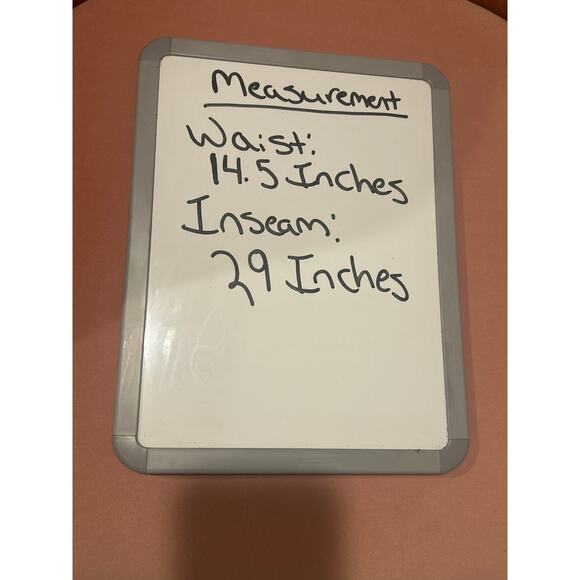 Measurement
Waist:
14.5 Inches
Inseam:
29 Inches